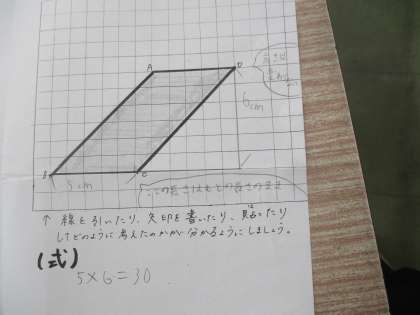 A
D
高さは
6cm
B
C
5cm
この長さはもとの長さのまま
↑ 線を引いたり、矢印を書いたり、貼ったり
してどのように考えたのかが分かるようにしましょう。
(式)
5×6=30